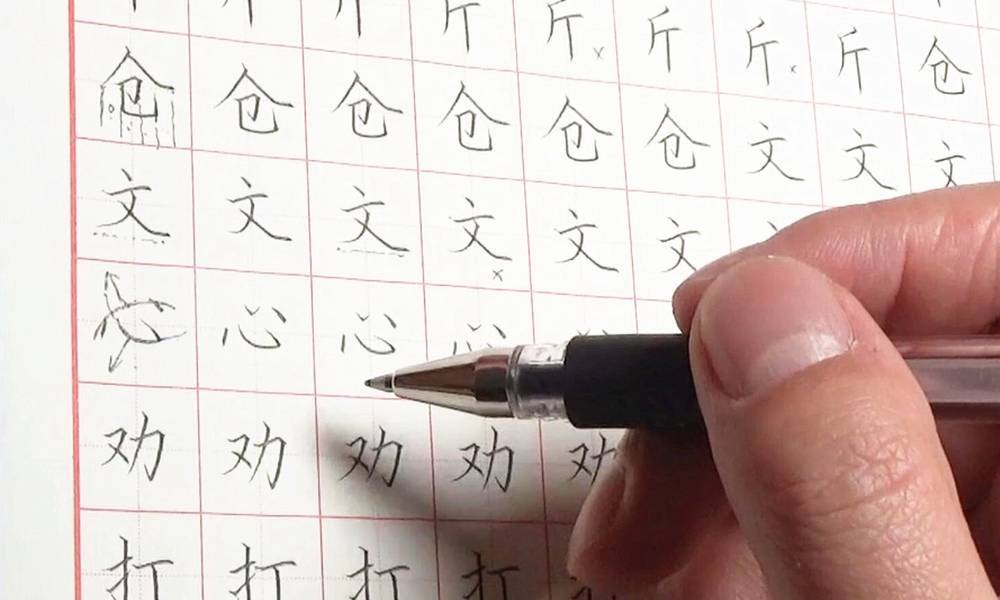 斤 斤 斤 斤 斤 斤 斤 仓
仓 仓 仓 仓 仓 仓 文 文 文
文 文 文 文 文 文
心 心 心 心
劝 劝 劝 劝 劝
打 打 打 打